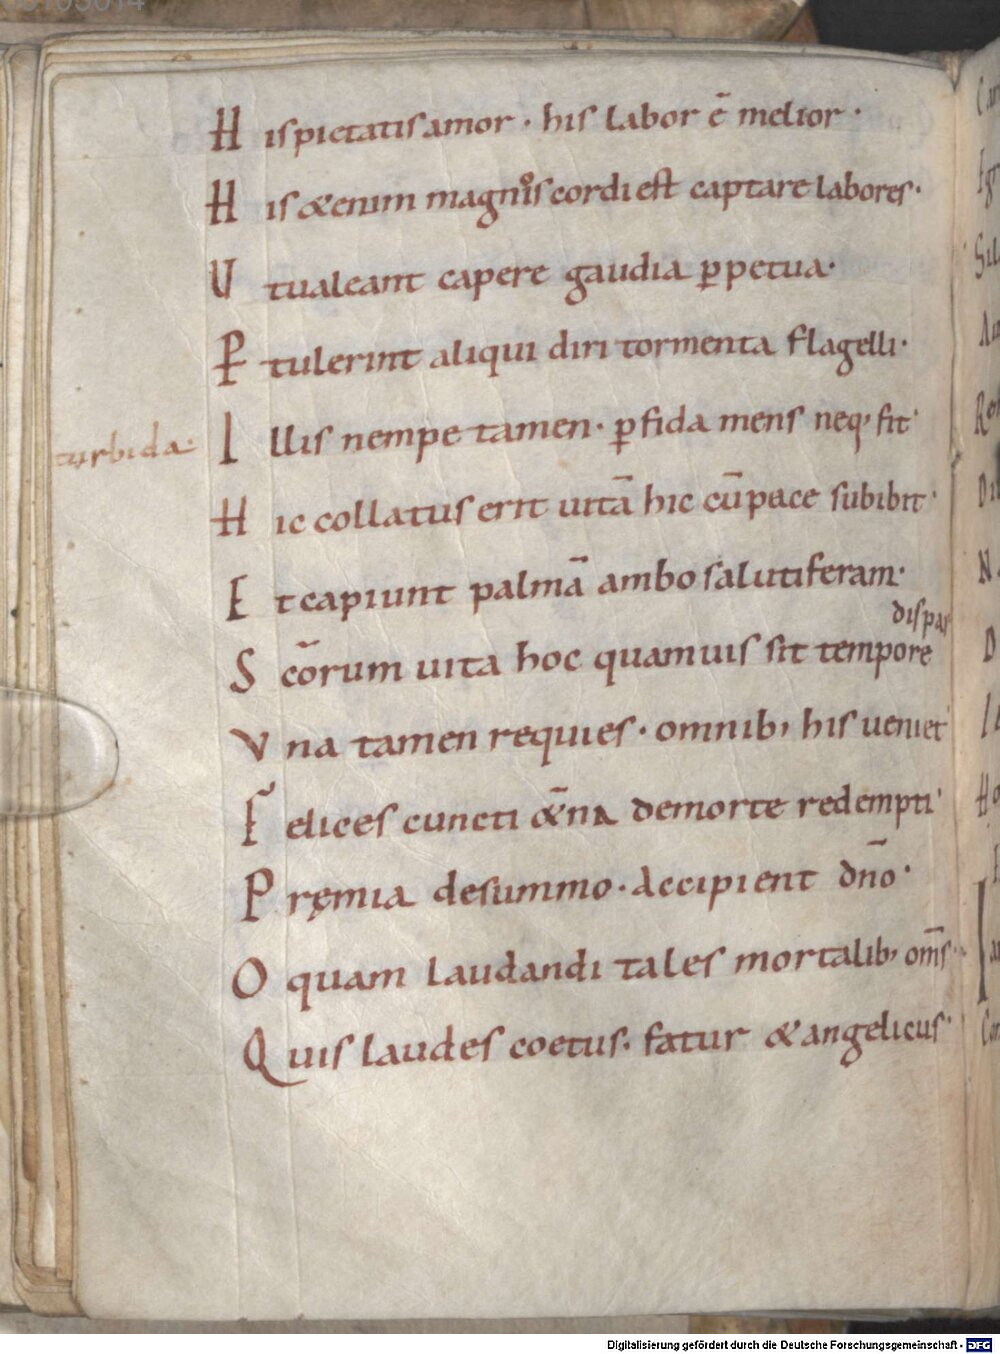 H ispietatisamor · his labor ē melior ·
H is &enim magnis cordi est captare labores ·
U tualeant capere gaudia ꝑpetua ·
P tulerint aliqui diri tormenta flagelli ·
turbida · I llis nempe tamen · ꝑfida mens neq; fit
H ic collatus erit uitā hic cū pace subibit ·
E t capiunt palmā ambo salutiferam ·
dispar
S cōrum uita hoc quamuis sit tempore
V na tamen requies · omnib; his ueniet
F elices cuncti &̄na demorte redempti
P ręmia desummo · accipient dn̄o ·
O quam laudandi tales mortalib; om̄s ·
Q uis laudes coetus · fatur &angelicus
Digitalisierung gefördert durch die Deutsche Forschungsgemeinschaft - DFG